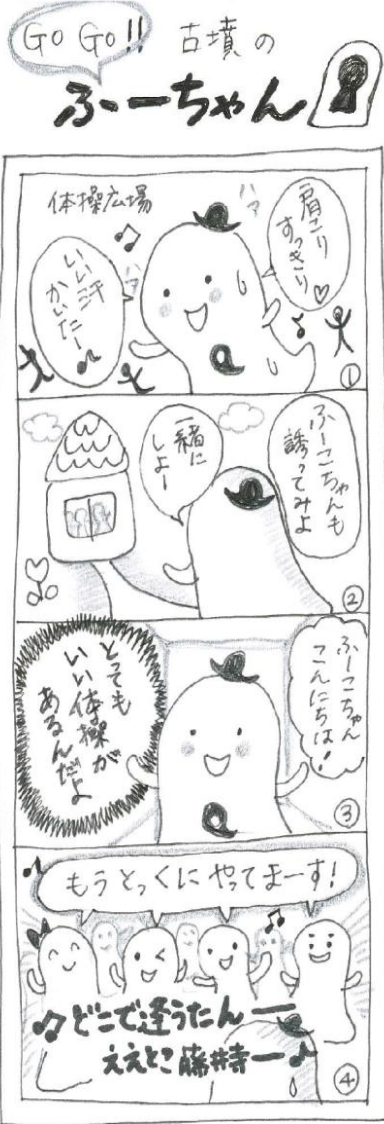 GO GO!!
古墳の
ふーちゃん
体操広場
肩こり
すっきり♡
ハァ
ハァ
いい汗
かいたー
①
ふーこちゃんも
誘ってみよ
一緒に
しよー
②
ふーこちゃん
こんにちは!
とっても
いい体操が
あるんだよ
③
もうとっくにやってまーす!
どこで逢うたん ー
ええとこ藤井寺ー♪
④